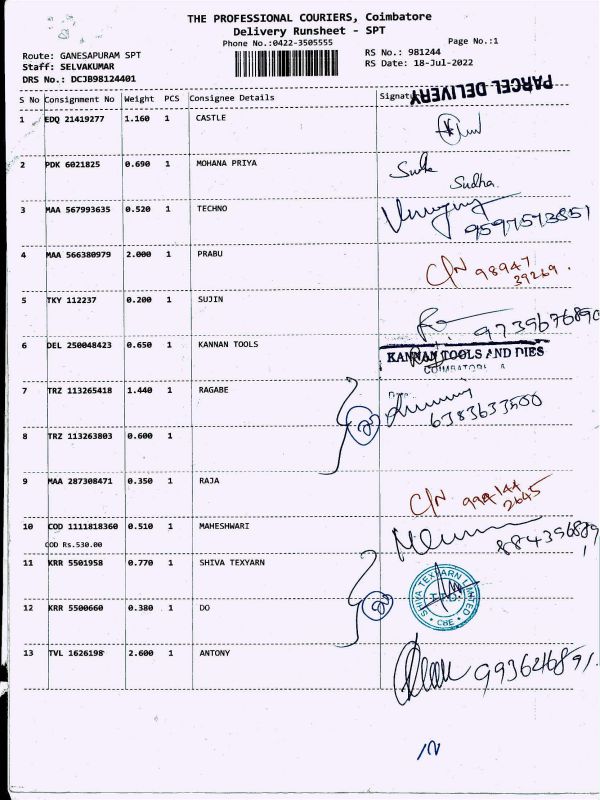 THE PROFESSIONAL COURIERS, Coimbatore
Delivery Runsheet - SPT
Phone No.:0422-3505555
Page No.:1
Route: GANESAPURAM SPT
RS No.: 981244
Staff: SELVAKUMAR
RS Date: 18-Jul-2022
DRS No.: DCJB98124401
PARCEL DELIVERY
S No Consignment No Weight PCS Consignee Details Signatu
1 EDQ 21419277 1.160 1 CASTLE
2 PDK 6021825 0.690 1 MOHANA PRIYA
Sudha.
3 MAA 567993635 0.520 1 TECHNO
9597573851
4 MAA 566380979 2.000 1 PRABU
C/N 98947
39269.
5 TKY 112237 0.200 1 SUJIN
6 DEL 250048423 0.650 1 KANNAN TOOLS
KANNAN TOOLS AND DIES
7 TRZ 113265418 1.440 1 RAGABE
6383633500
2
8 TRZ 113263803 0.600 1
9 MAA 287308471 0.350 1 RAJA
C/N
2645
10 COD 1111818360 0.510 1 MAHESHWARI
COD Rs.530.00
11 KRR 5501958 0.770 1 SHIVA TEXYARN
SHIVA TEXYARN LIMITED
CBE
2
12 KRR 5500660 0.380 1 DO
13 TVL 1626198 2.600 1 ANTONY